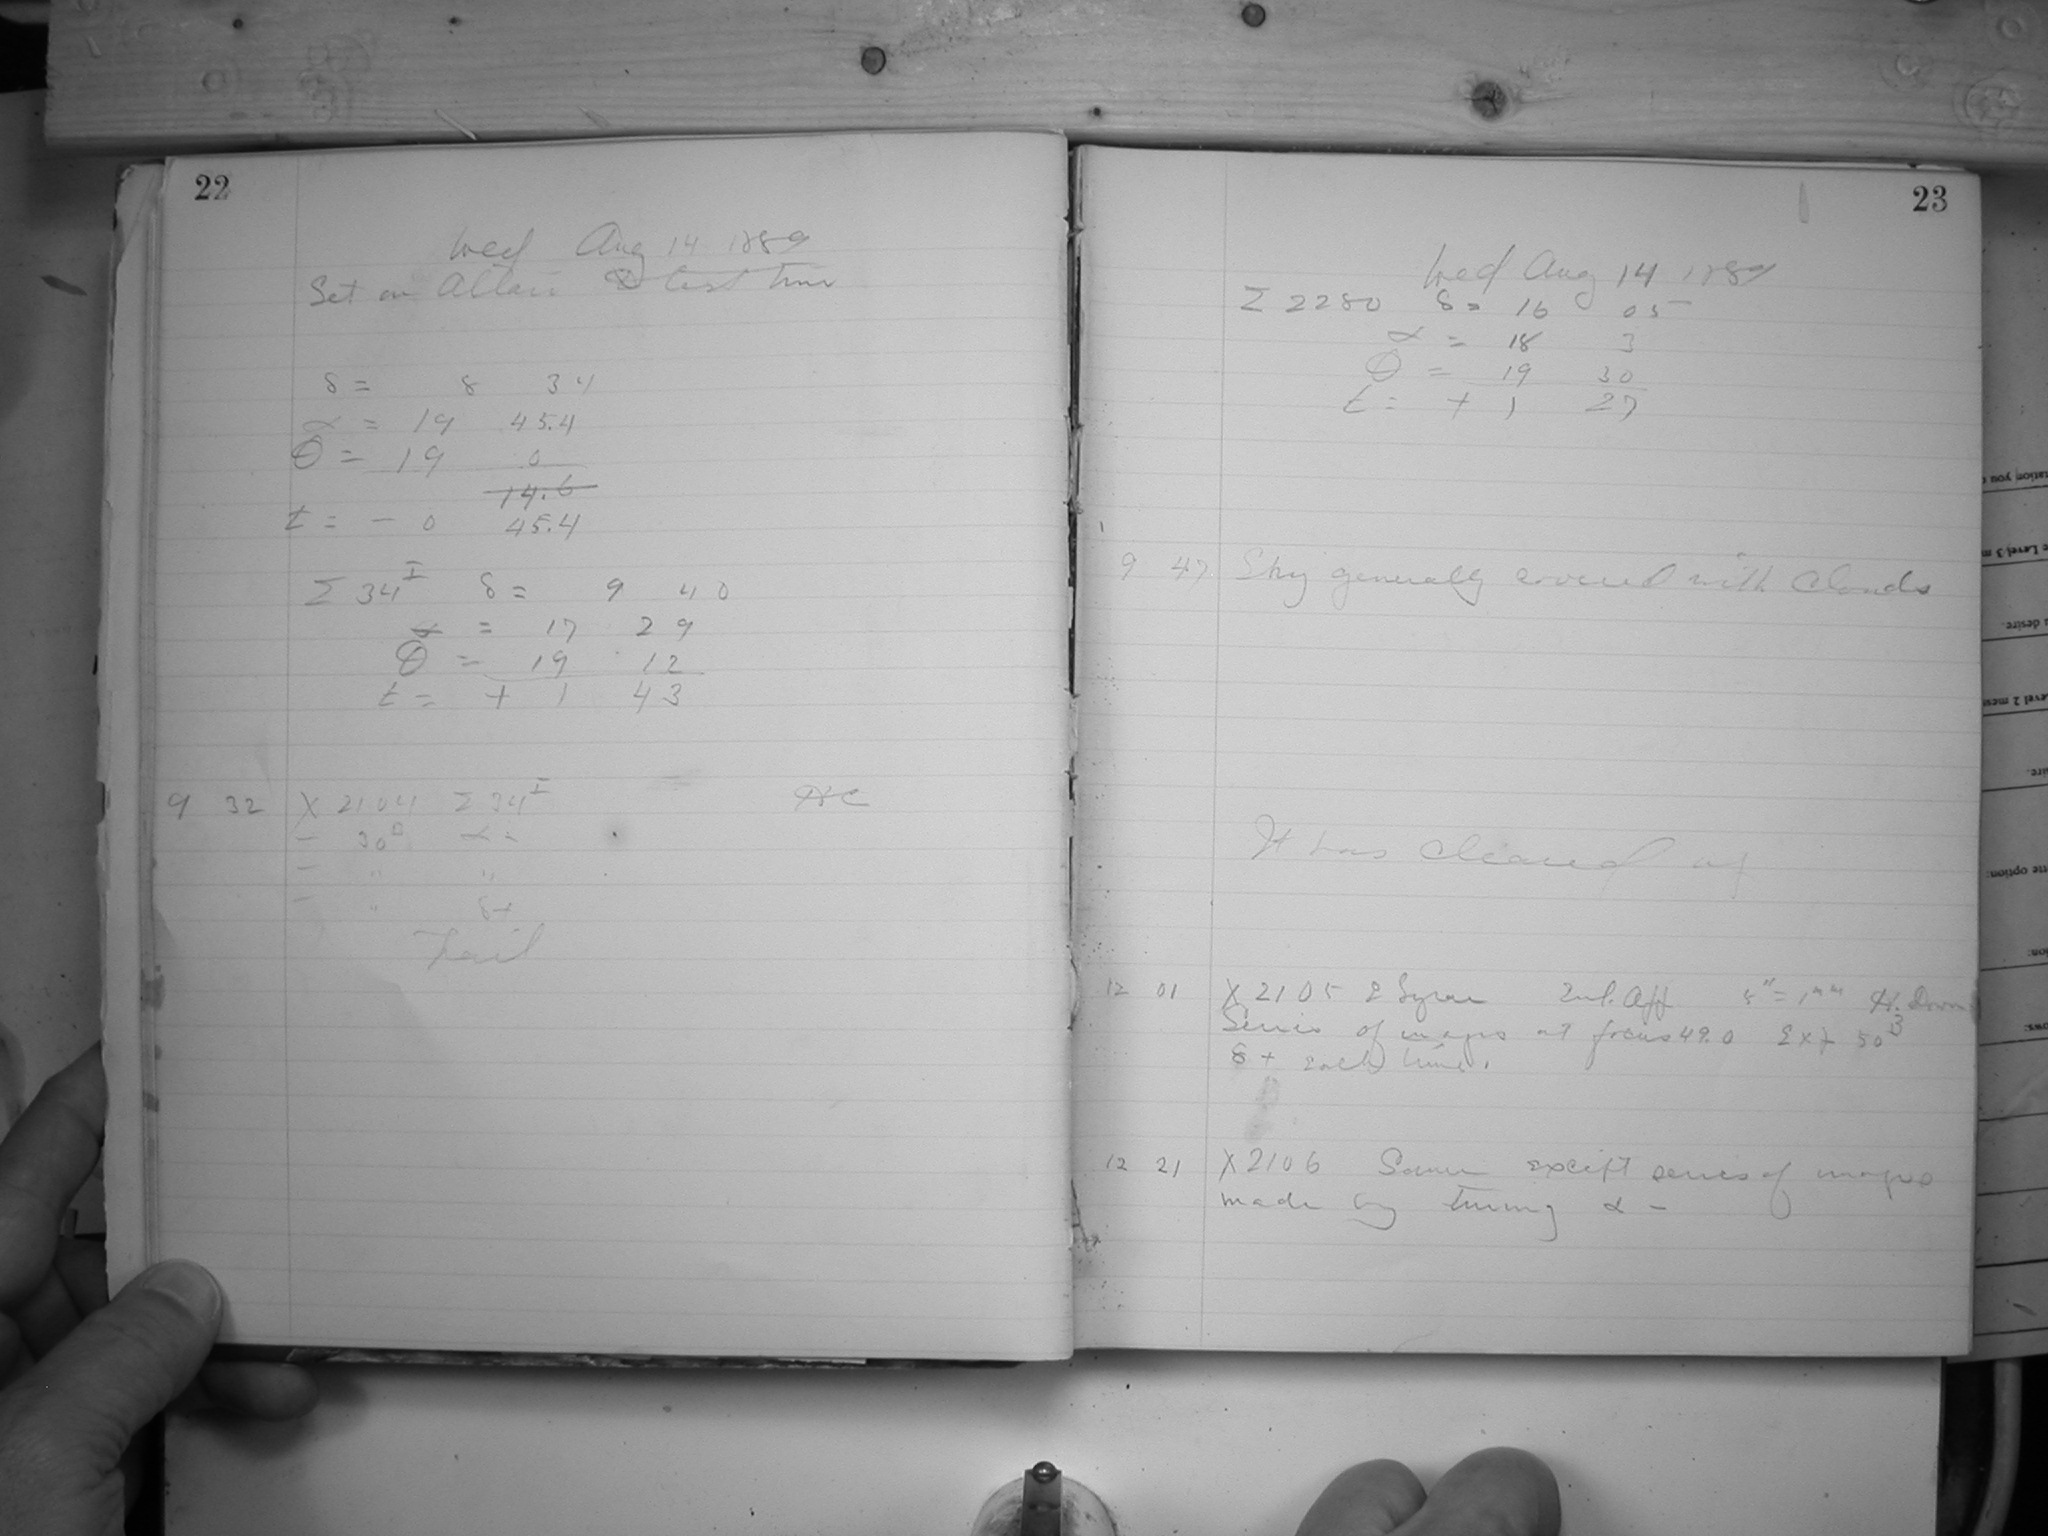 22
Wed Aug 14 1889
Set on Altair & test time
δ = 8 34
α = 19 45.4
θ = 19 0
14.6
t = - 0 45.4
Σ 34 I δ = 9 40
α = 17 29
θ = 19 12
t = + 1 43
9 32 X 2104 Σ 34 I
- 30 α -
- " "
- " δ +
Trail
23
Wed Aug 14 1889
Σ 2280 δ = 16 05
α = 18 3
θ = 19 30
t = + 1 27
9 47 Sky generally covered with Clouds
It has cleared up
12 01 X 2105 ε Lyrae Enl. App 5" = 1 mm
Series of images at focus 49.0 Exp 50
δ + each time.
12 21 X 2106 Same except series of images
made by turning α -